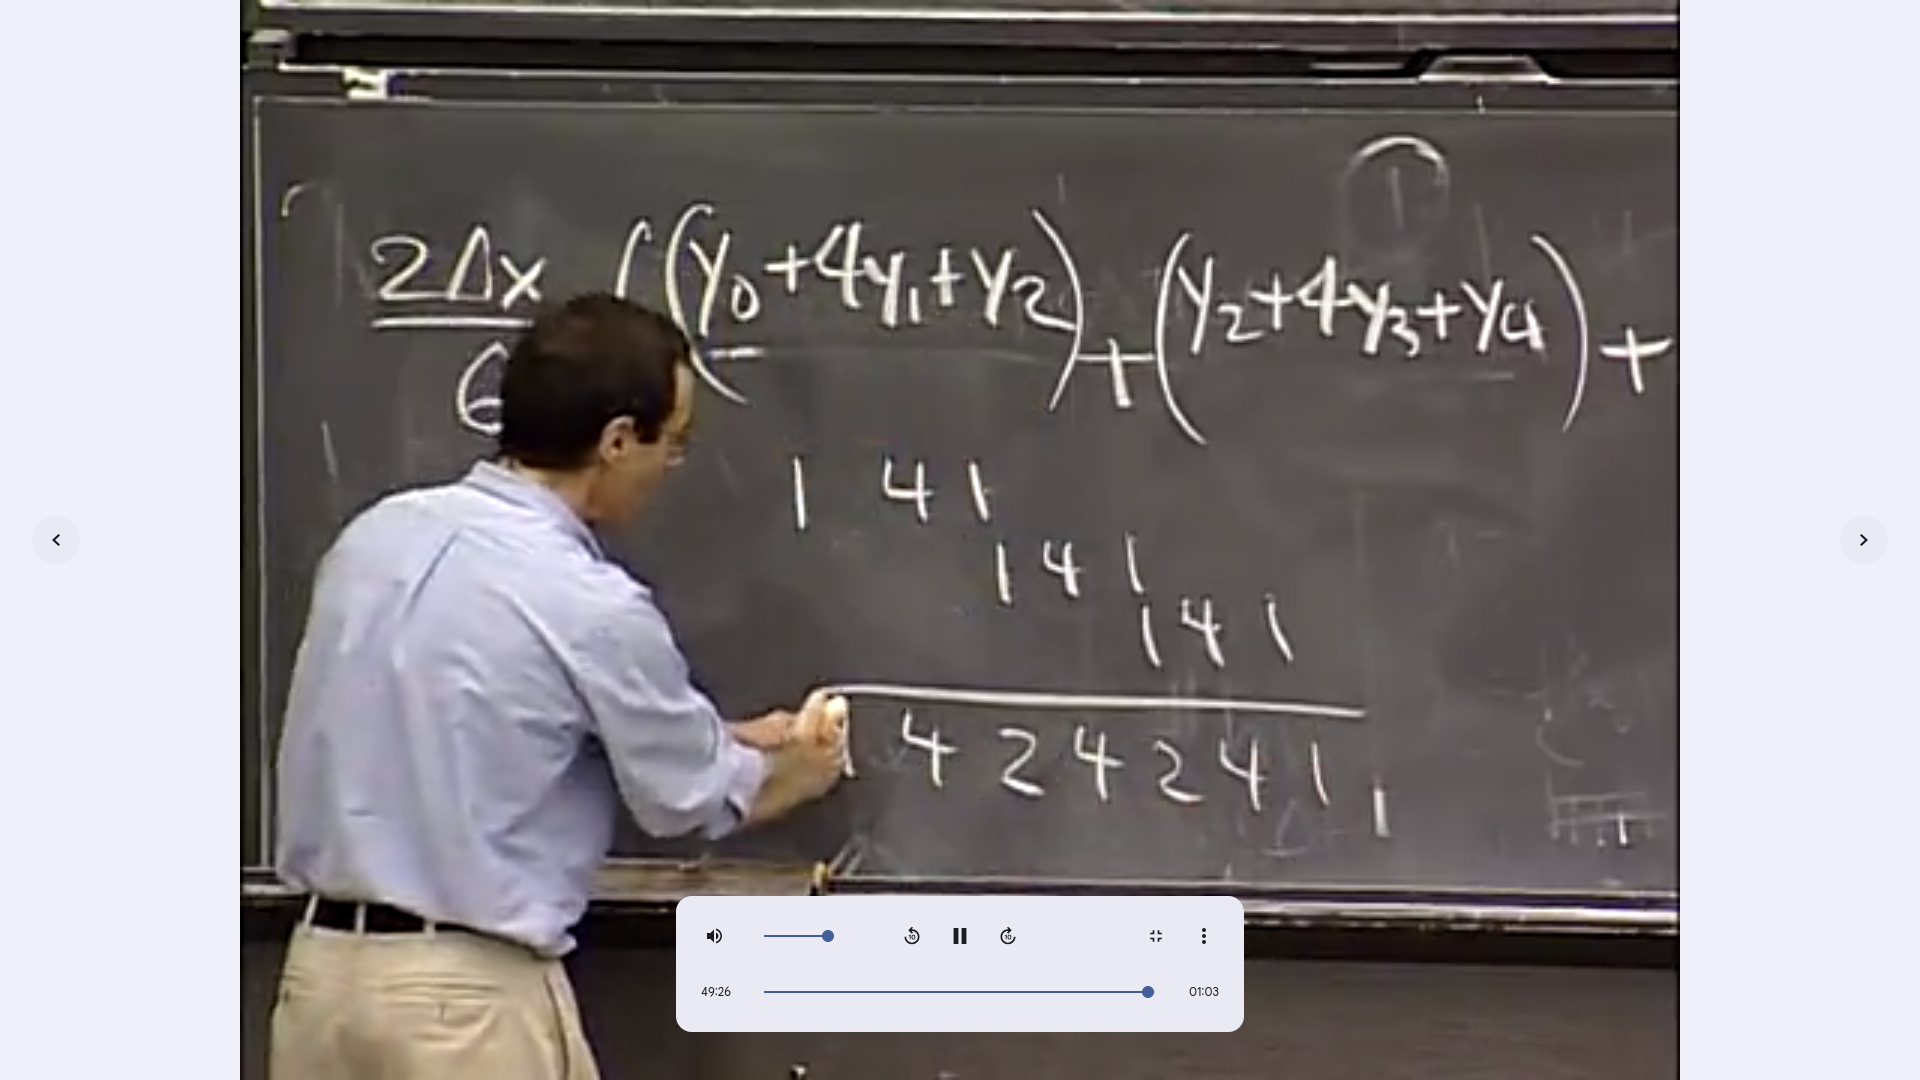 2Δx ((y₀+4y₁+y₂)+(y₂+4y₃+y₄)+
6
1 4 1
1 4 1
1 4 1
1 4 2 4 2 4 1
10
10
49:26
01:03